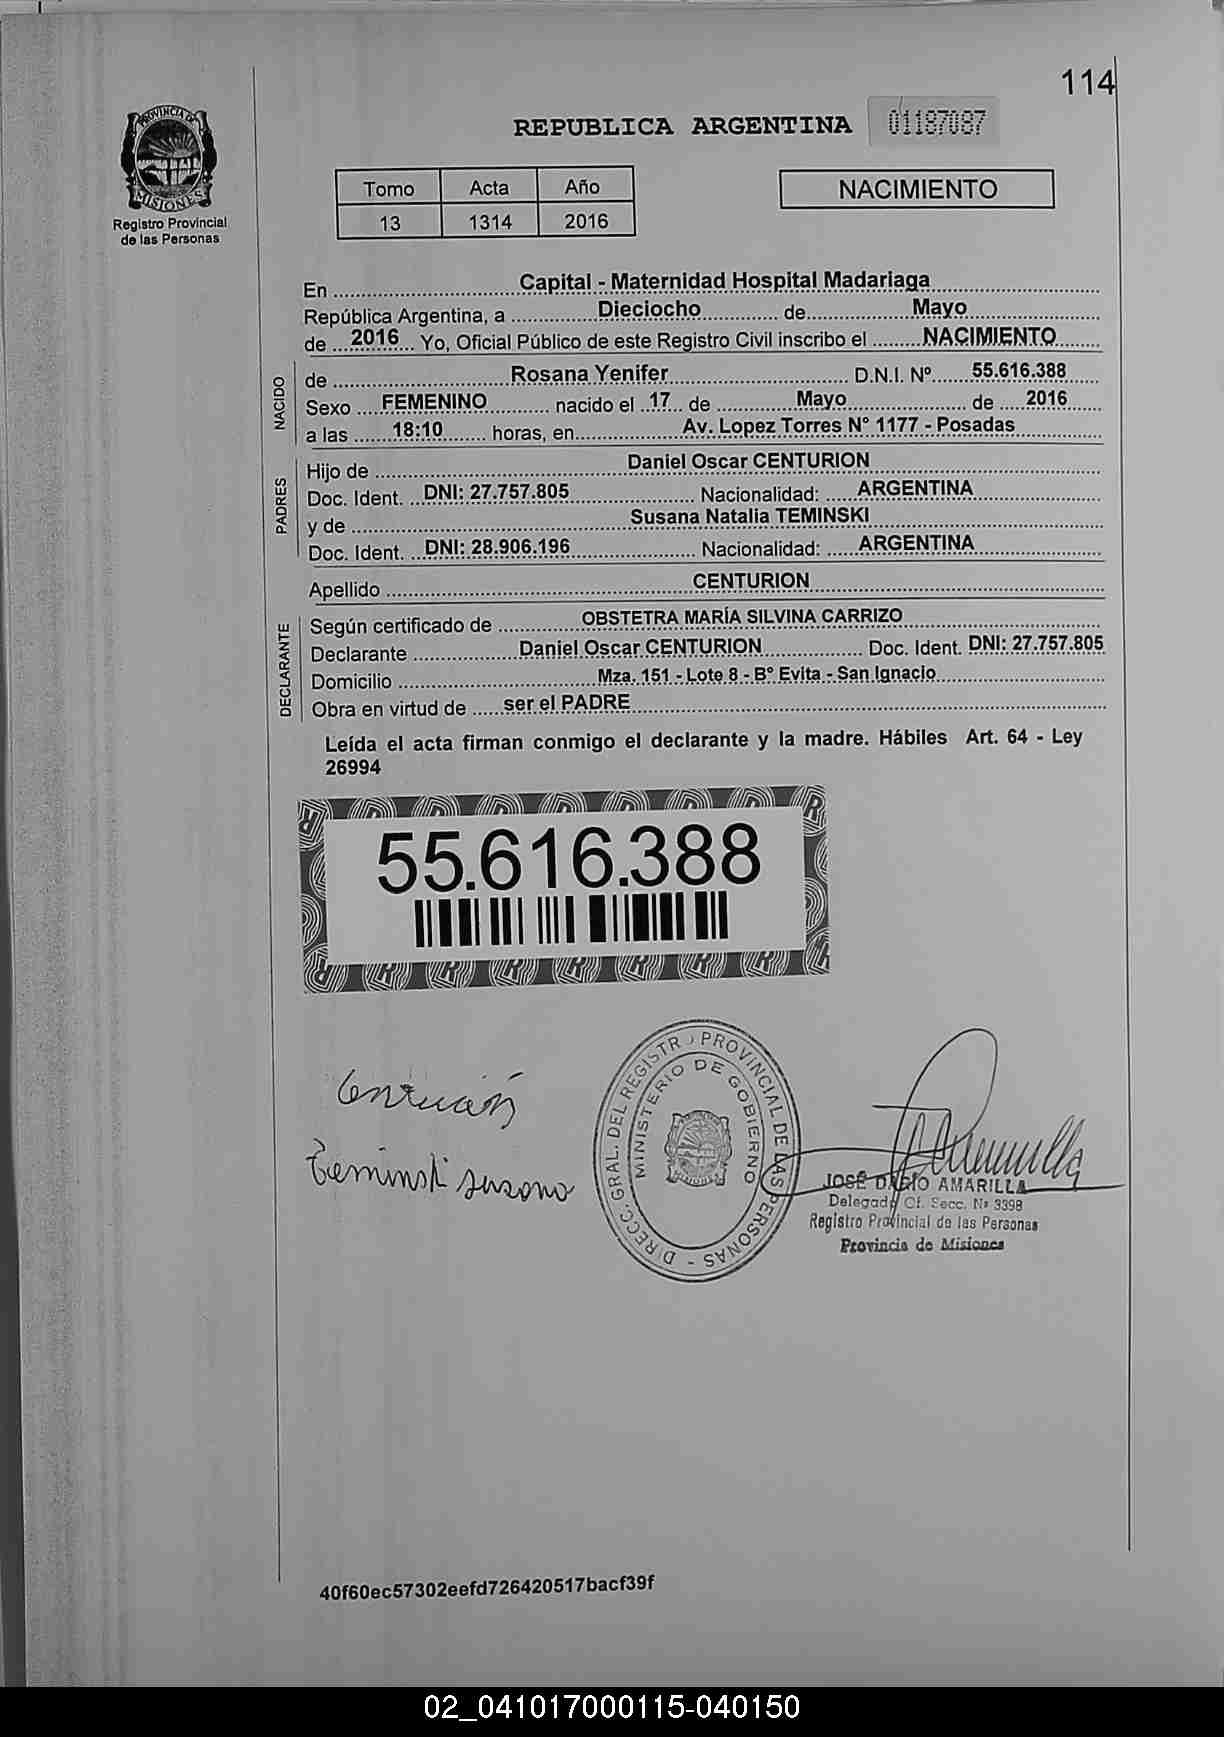 114
PROVINCIA DE
MISIONES
Registro Provincial
de las Personas
REPUBLICA ARGENTINA
01187087
Tomo Acta Año
13 1314 2016
NACIMIENTO
En Capital - Maternidad Hospital Madariaga
República Argentina, a Dieciocho de Mayo
de 2016 Yo, Oficial Público de este Registro Civil inscribo el NACIMIENTO
NACIDO
de Rosana Yenifer D.N.I. Nº 55.616.388
Sexo FEMENINO nacido el 17 de Mayo de 2016
a las 18:10 horas, en Av. Lopez Torres N° 1177 - Posadas
PADRES
Hijo de Daniel Oscar CENTURION
Doc. Ident. DNI: 27.757.805 Nacionalidad: ARGENTINA
y de Susana Natalia TEMINSKI
Doc. Ident. DNI: 28.906.196 Nacionalidad: ARGENTINA
Apellido CENTURION
DECLARANTE
Según certificado de OBSTETRA MARÍA SILVINA CARRIZO
Declarante Daniel Oscar CENTURION Doc. Ident. DNI: 27.757.805
Domicilio Mza. 151 - Lote 8 - B° Evita - San Ignacio
Obra en virtud de ser el PADRE
Leída el acta firman conmigo el declarante y la madre. Hábiles Art. 64 - Ley
26994
55.616.388
Centurión
Teminski Susana
DIRECC. GRAL. DEL REGISTRO PROVINCIAL DE LAS PERSONAS -
MINISTERIO DE GOBIERNO
JOSÉ DARÍO AMARILLA
Delegado Cf. Secc. Nº 3398
Registro Provincial de las Personas
Provincia de Misiones
40f60ec57302eefd726420517bacf39f
02_041017000115-040150